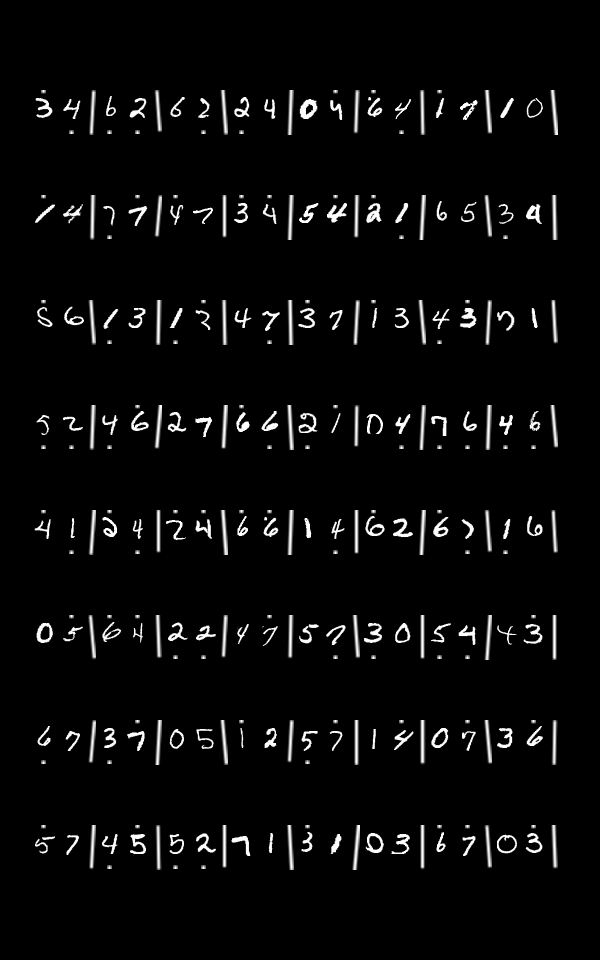 3 4 | 6 2 | 6 2 | 2 4 | 0 4 | 6 4 | 1 7 | 1 0 |
1 4 | 7 7 | 4 7 | 3 4 | 5 4 | 2 1 | 6 5 | 3 4 |
5 6 | 1 3 | 1 2 | 4 7 | 3 7 | 1 3 | 4 3 | 7 1 |
5 2 | 4 6 | 2 7 | 6 6 | 2 1 | 0 4 | 7 6 | 4 6 |
4 1 | 2 4 | 2 4 | 6 6 | 1 4 | 6 2 | 6 7 | 1 6 |
0 5 | 6 4 | 2 2 | 4 7 | 5 7 | 3 0 | 5 4 | 4 3 |
6 7 | 3 7 | 0 5 | 1 2 | 5 7 | 1 4 | 0 7 | 3 6 |
5 7 | 4 5 | 5 2 | 7 1 | 3 1 | 0 3 | 6 7 | 0 3 |